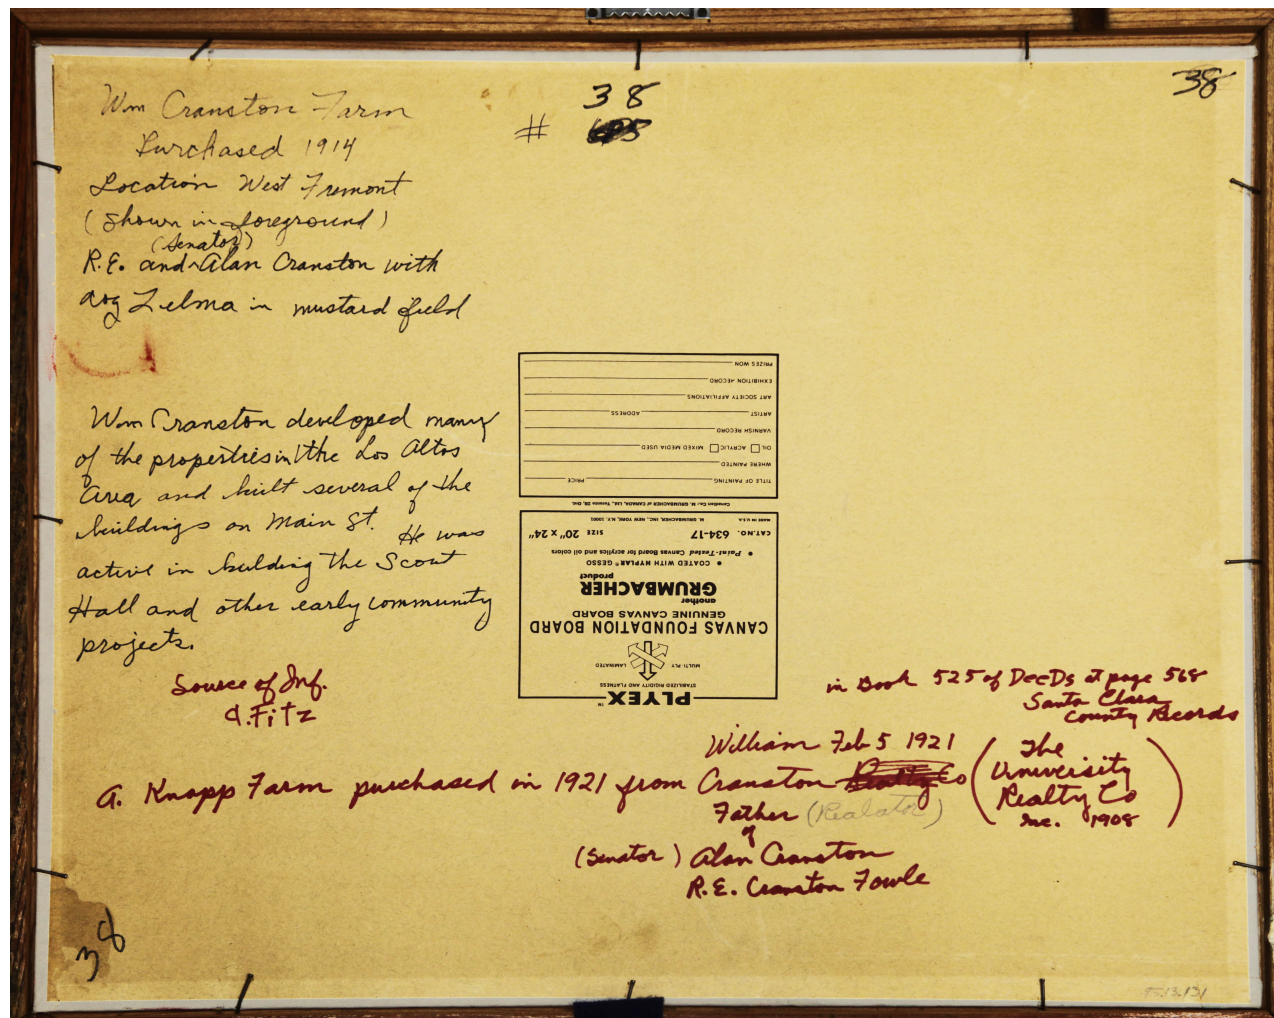 38
38
# 
Wm Cranston Farm
Purchased 1914
Location West Fremont
(Shown in foreground)
(Senator)
R.E. and Alan Cranston with
dog Zelma in mustard field
Wm Cranston developed many
of the properties in the Los Altos
Area and built several of the
buildings on Main St. He was
active in building the Scout
Hall and other early community
projects.
Source of Inf.
J. Fitz
PRIZES WON
EXHIBITION RECORD
ART SOCIETY AFFILIATIONS
ARTIST ADDRESS
VARNISH RECORD
OIL ACRYLIC MIXED MEDIA USED
WHERE PAINTED
TITLE OF PAINTING PRICE
Canadian Co.: M. GRUMBACHER of CANADA, Ltd., Toronto 28, Ont.
MADE IN U.S.A. M. GRUMBACHER INC., NEW YORK, N.Y. 10001
CAT.NO. 634-17 SIZE 20" x 24"
• Paint-Tested Canvas Board for acrylics and oil colors •
• COATED WITH HYPLAR® GESSO •
GRUMBACHER product
another
GENUINE CANVAS BOARD
CANVAS FOUNDATION BOARD
MULTI-PLY LAMINATED
STABILIZED RIGIDITY AND FLATNESS
PLYEX TM
in Book 525 of DeeDs at page 568
Santa Clara
County Records
William Feb 5 1921
A. Knapp Farm purchased in 1921 from Cranston Realty Co (The
University
Realty Co
Inc. 1908)
Father (Realator)
of
(Senator) Alan Cranston
R.E. Cranston Fowle
38
95.13.131